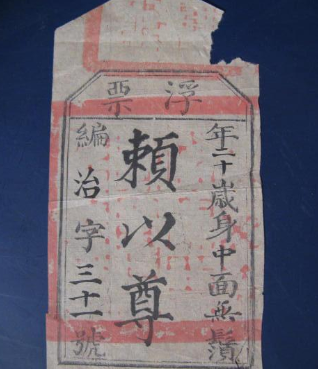 浮票
年二十歲身中面無鬚
賴以尊
編治字三十一號